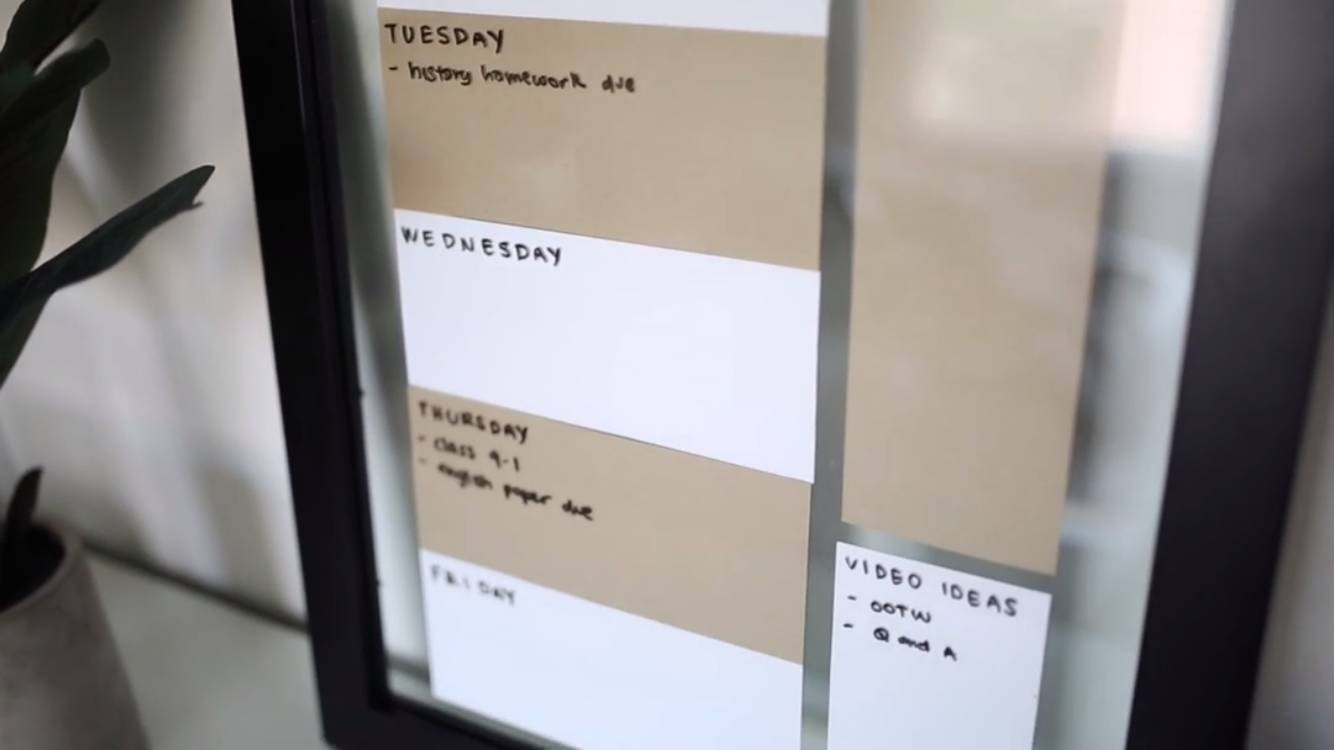 TUESDAY
- history homework due
WEDNESDAY
THURSDAY
- class 9-1
- english paper due
FRIDAY
VIDEO IDEAS
- OOTW
- Q and A